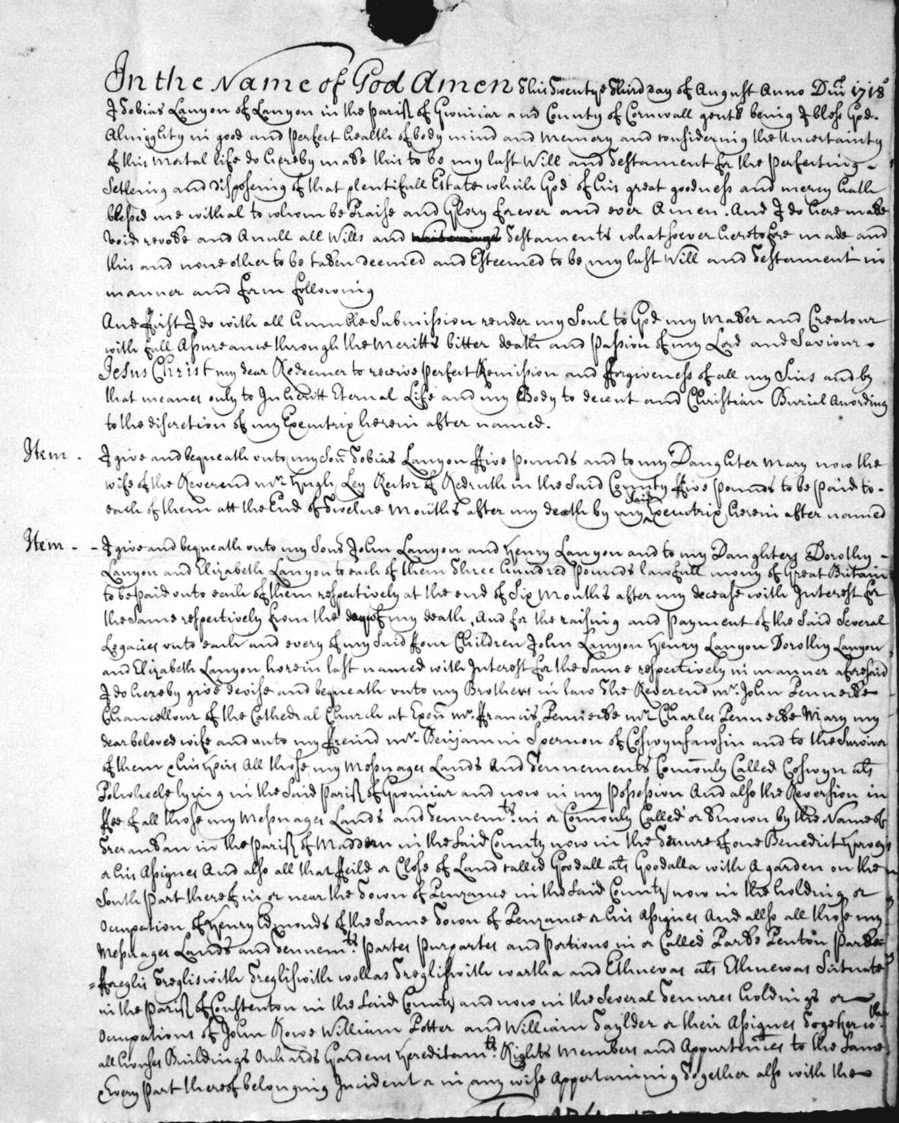 In the Name of God Amen this Twentye third day of August Anno Dm 1718
I Tobias Lanyon of Lanyon in the parish of Gwiniar and County of Cornwall gent being I bless God
Almighty in good and perfect health of body mind and memory and considering the Uncertainty
of this mortal life do hereby make this to be my last Will and Testament for the perfecting
Setleing and Disposeing of that plentifull Estate which God of his great goodness and mercy hath
blessed me withal to whom be Praise and Glory forever and ever Amen. And I do here make
void revoke and Anull all Wills and Testaments whatsoever heretofore made and
this and none other to be taken deemed and Esteemed to be my last Will and Testament in
manner and form following
And first I do with all humble Submission render my Soul to God my Maker and Creatour
with full Assureance through the Meritts bitter death and Passion of my Lord and Saviour
Jesus Christ my dear Redeemer to receive perfect Remission and forgiveness of all my Sins and by
that means only to Inheritt Eternal Life and my Body to decent and Christian Burial According
to the discretion of my Executrix herein after named.
Item. I give and bequeath unto my Son Tobias Lanyon ffive pounds and to my Daughter Mary now the
wife of the Reverend Mr. Hugh Ley Rector of Redruth in the said County ffive pounds to be paid to
each of them att the End of Twelve Months after my death by my said Executrix herein after named
Item - I give and bequeath unto my Sons John Lanyon and Henry Lanyon and to my Daughters Dorothy
Lanyon and Elizabeth Lanyon to each of them Three hundred pounds lawfull mony of Great Britain
to be paid unto each of them respectively at the end of Six Months after my decease with Interest for
the same respectively from the day of my death, And for the raising and payment of the said Several
Legacies unto each and every of my said ffour Children John Lanyon Henry Lanyon Dorothy Lanyon
and Elizabeth Lanyon herein last named with Interest for the same respectively in manner aforesaid
I do hereby give devise and bequeath unto my Brothers in law The Reverend Mr. John Pennecke
Chancellour of the Cathedral Church at Exon Mr. ffrancis Pennecke Mr. Charles Pennecke Mary my
dear beloved wife and unto my ffreind Mr. Benjamin Spernon of and to the Survivor
of them All those my Messuages Lands And Tennements Comonly Called Coswyn als
Polwheele lying in the said Parish of Gwiniar and now in my Possession And also the Reversion in
ffee of all those my Messuages Lands and Tennemts. in or Comonly Called or known by the Name of
in the parish of Maddern in the said County now in the Tenure of one Benedict
or his Assignes And also all that ffeild or Close of Land called Goodall als Goodalla with A garden on the
South part thereof in or near the Town of Penzance in the said County now in the holding or
Occupation of Henry Edmonds of the same Town of Penzance or his Assignes And allso all those my
Messuages Lands and Tennemts. Partes Purpartes and portions in or Called Parke Penton Parke
Tregliswith Treglisswith wollas Treglisswith wartha and Ethnevas als Ethnewas Situate
in the Parish of Constenton in the said County and now in the Several Tenures holdings or
Occupations of John Rowe William Potter and William Taylder or their Assignes Together wth.
all houses Buildings Orchards Gardens Hereditamts. Rights Members and Appurtences to the same
Every part thereof belonging Incident or in any wise Appertaining Together also with the